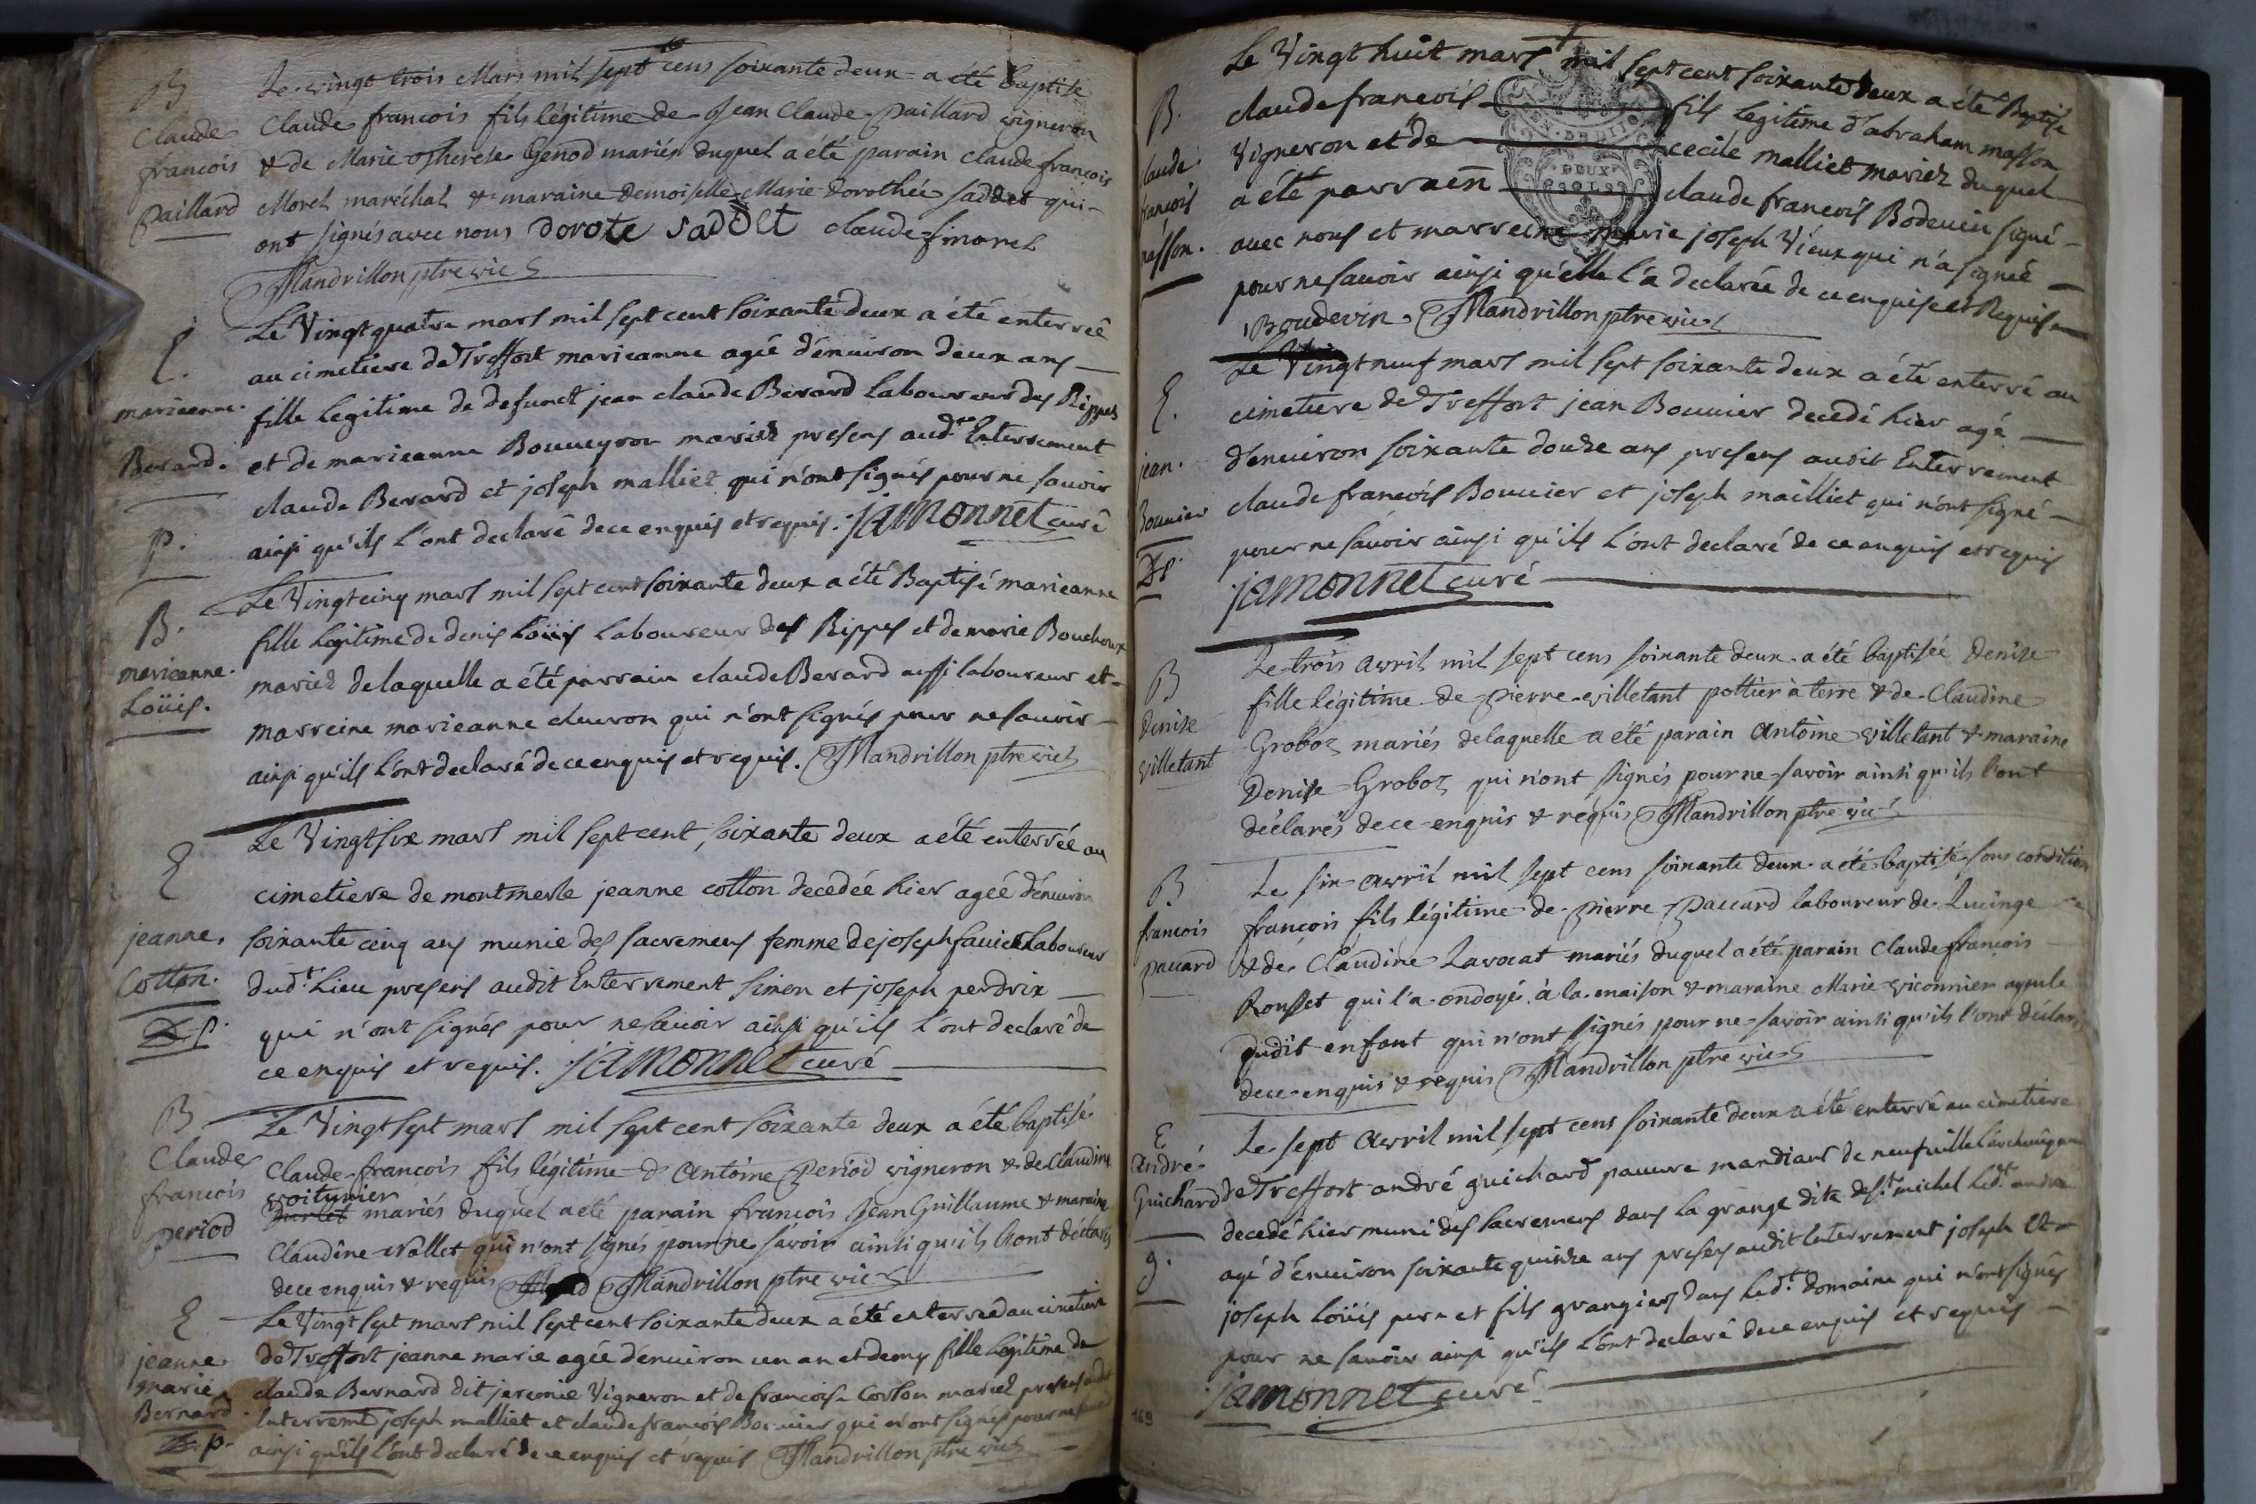 B
Claude
francois
Paillard
Le vingt trois Mars mil sept cens soixante deux a été baptisé
Claude francois fils légitime de Jean Claude Paillard vigneron
& de Marie Therese Genod mariés duquel a été parain claude françois
Morel maréchal & maraine Demoiselle Marie Dorothée saddet qui
ont signés avec nous dorote saddet claude f morel
Mandrillon ptre vic
E.
marieanne
Berard.
p.
Le Vingt quatre mars mil sept cent soixante deux a été enterreé
au cimetiere de Treffort marieanne ageé d'enuiron deux ans
fille legitime de defunct jean claude Berard laboureur des Rippes
et de marieanne Bouueyron mariez presens aud.t Enterrement
claude Berard et joseph malliet qui n'ont signés pour ne sauoir
ainsi qu'ils l'ont declaré de ce enquis et requis. jamonnet curé
B.
marieanne
Loüis.
Le Vingt cinq mars mil sept cent soixante deux a été Baptisé marieanne
fille legitime de denis Loüis laboureur des Rippes et de marie Bouchoux
mariez de laquelle a été parrain claude Berard aussi laboureur et
marreine marieanne chevron qui n'ont signés pour ne sauoir
ainsi qu'ils l'ont declaré de ce enquis et requis. Mandrillon ptre vic
E
jeanne
Cotton.
p.
Le Vingt six mars mil sept cent soixante deux a été enterrée au
cimetiere de montmerle jeanne cotton decedée hier ageé d'enuiron
soixante cinq ans munie des sacremens femme de joseph sauier laboureur
dud.t Lieu presens audit Enterrement simon et joseph perdrix
qui n'ont signés pour ne sauoir ainsi qu'ils l'ont declaré de
ce enquis et requis. jamonnet curé
B
Claude
francois
period
Le Vingt sept mars mil sept cent soixante deux a été baptisé
Claude francois fils légitime d'Antoine Period vigneron & de Claudine
voiturier
mariés duquel a été parain francois Jean Guillaume & maraine
Claudine Vallet qui n'ont signés pour ne savoir ainsi qu'ils l'ont déclarés
de ce enquis & requis Mandrillon ptre vic
E
jeanne
marie
Bernard
p.
Le Vingt sept mars mil sept cent soixante deux a été enterreé au cimetiere
de Treffort jeanne marie agée d'enuiron un an et demy fille legitime de
claude Bernard dit jeremie Vigneron et de francoise Cotton mariez presens audit
Enterremt joseph malliet et claude francois Bouuier qui n'ont signés pour ne sauoir
ainsi qu'ils l'ont declaré de ce enquis et requis Mandrillon ptre vic
B.
claude
francois
masson.
Le Vingt huit mars mil sept cent soixante deux a été Baptisé
claude francois fils legitime d'abraham masson
Vigneron et de cecile malliet mariez duquel
a été parrain claude francois Bodeuin signé
DEUX SOLS
avec nous et marreine marie joseph Vieux qui n'a signée
pour ne sauoir ainsi qu'elle l'a declarée de ce enquise et Requise
Boudevin. Mandrillon ptre vic
E.
jean
Bouuier
p.
Le Vingt neuf mars mil sept soixante deux a été enterré au
cimetiere de Treffort jean Bouuier decedé hier agé
d'enuiron soixante douze ans presens audit Enterrement
claude francois Bouuier et joseph mailliet qui n'ont signé
pour ne sauoir ainsi qu'ils l'ont declaré de ce enquis et requis
jamonnet curé
B
Denise
villetant
Le trois Avril mil sept cens soixante deux a été baptisée Denise
fille légitime de Pierre villetant pottier à terre & de Claudine
Groboz mariés de laquelle a été parain Antoine villetant & maraine
Denise Groboz qui n'ont signés pour ne savoir ainsi qu'ils l'ont
déclarés de ce enquis & requis Mandrillon ptre vic
B
francois
paccard
Le six Avril mil sept cens soixante deux a été baptisé sous condition
françois fils légitime de Pierre Paccard laboureur de Lucinge
& de Claudine Lavocat mariés duquel a été parain Claude françois
Rousset qui l'a ondoyé à la maison & maraine Marie viconnier ayeule
dudit enfant qui n'ont signés pour ne savoir ainsi qu'ils l'ont déclaré
de ce enquis & requis Mandrillon ptre vic
E
André
Guichard
g.
Le sept Avril mil sept cens soixante deux a été enterré au cimetiere
de Treffort andré guichard pauure mandiant de neufuille
decedé hier muni des sacremens dans la grange dite de s.t michel led.t andré
agé d'enuiron soixante quinze ans presens audit Enterrement joseph et
joseph Loüis pere et fils grangiers dans led.t domaine qui n'ont signés
pour ne sauoir ainsi qu'ils l'ont declaré de ce enquis et requis
jamonnet curé
169